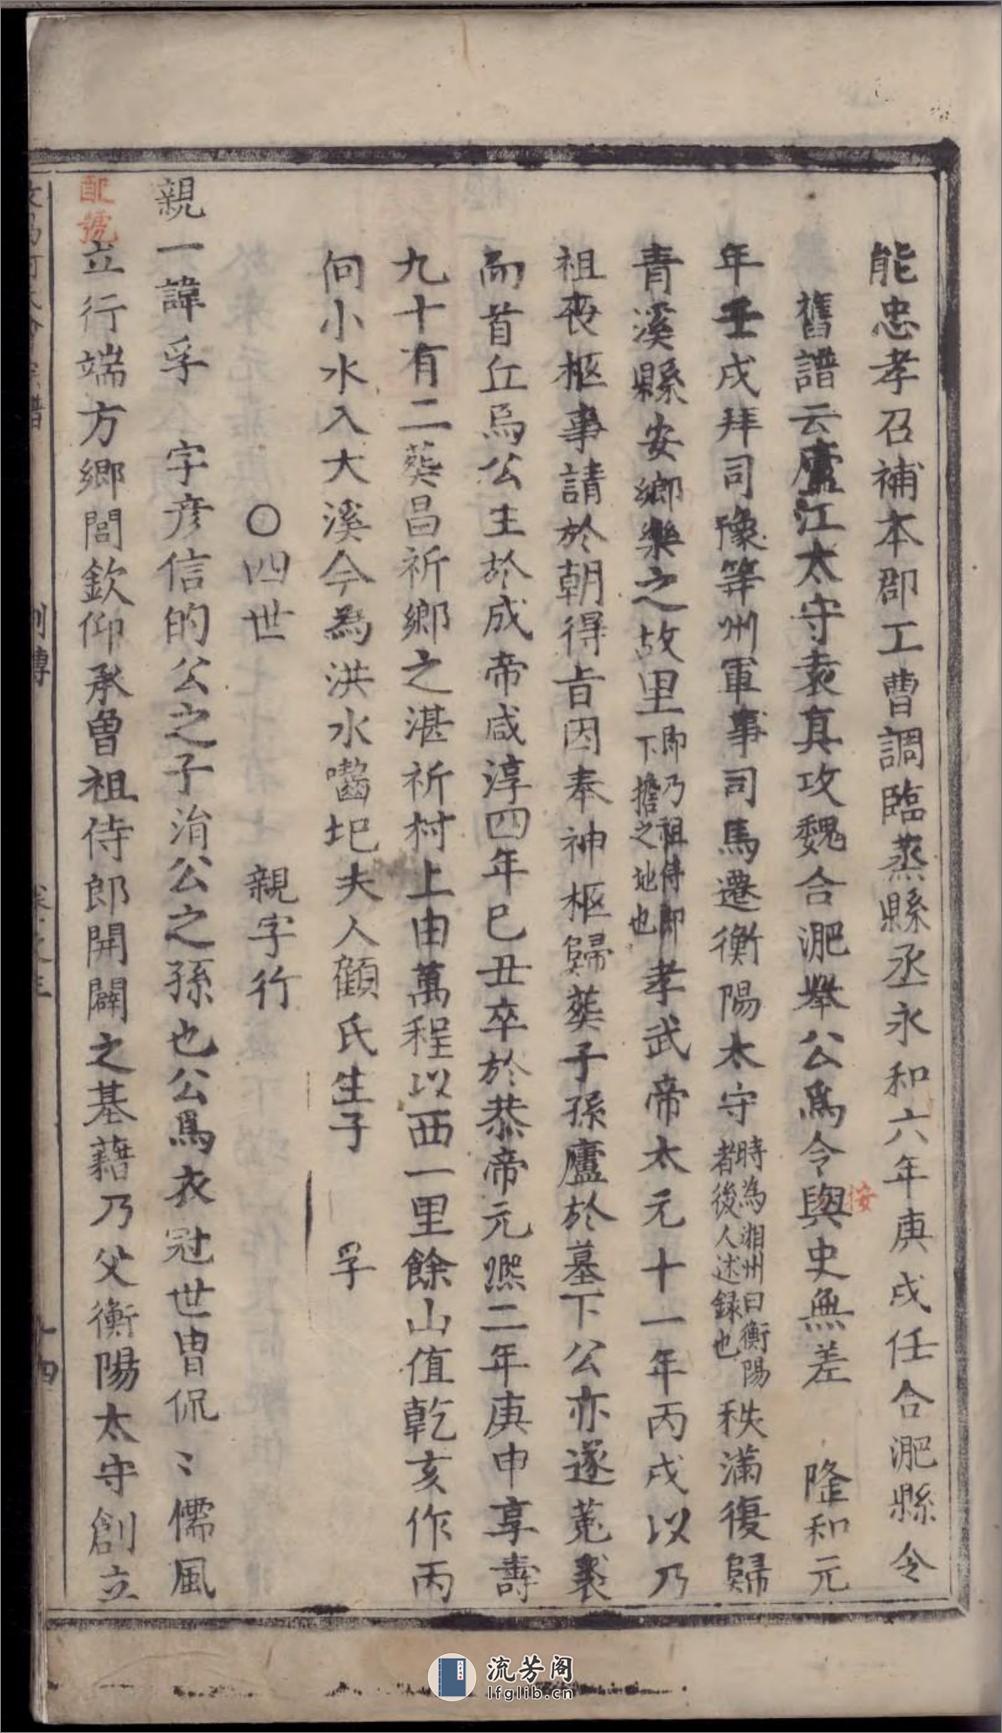 能忠孝召補本郡工曹調臨蒸縣丞永和六年庚戌任合淝縣令
按
舊譜云廬江太守袁真攻魏合淝舉公爲令與史無差 隆和元
年壬戌拜司豫等州軍事司馬遷衡陽太守時為湘州曰衡陽者後人述録也秩滿復歸
青溪縣安鄉樂之故里即乃祖侍郎下擔之地也孝武帝太元十一年丙戌以乃
祖喪柩事請於朝得旨因奉神柩歸葬子孫廬於墓下公亦遂菟裘
而首丘焉公生於成帝咸淳四年巳丑卒於恭帝元熙二年庚申享壽
九十有二葬昌祈鄉之湛祈村上由萬程以西一里餘山值乾亥作丙
向小水入大溪今為洪水囓圯夫人顧氏生子 孚
〇四世 親字行
親一諱孚 字彦信的公之子淯公之孫也公爲衣冠世胄侃〻儒風
配號
立行端方鄉閭欽仰承曾祖侍郎開闢之基藉乃父衡陽太守創立
列傳
流芳阁
lfglib.cn